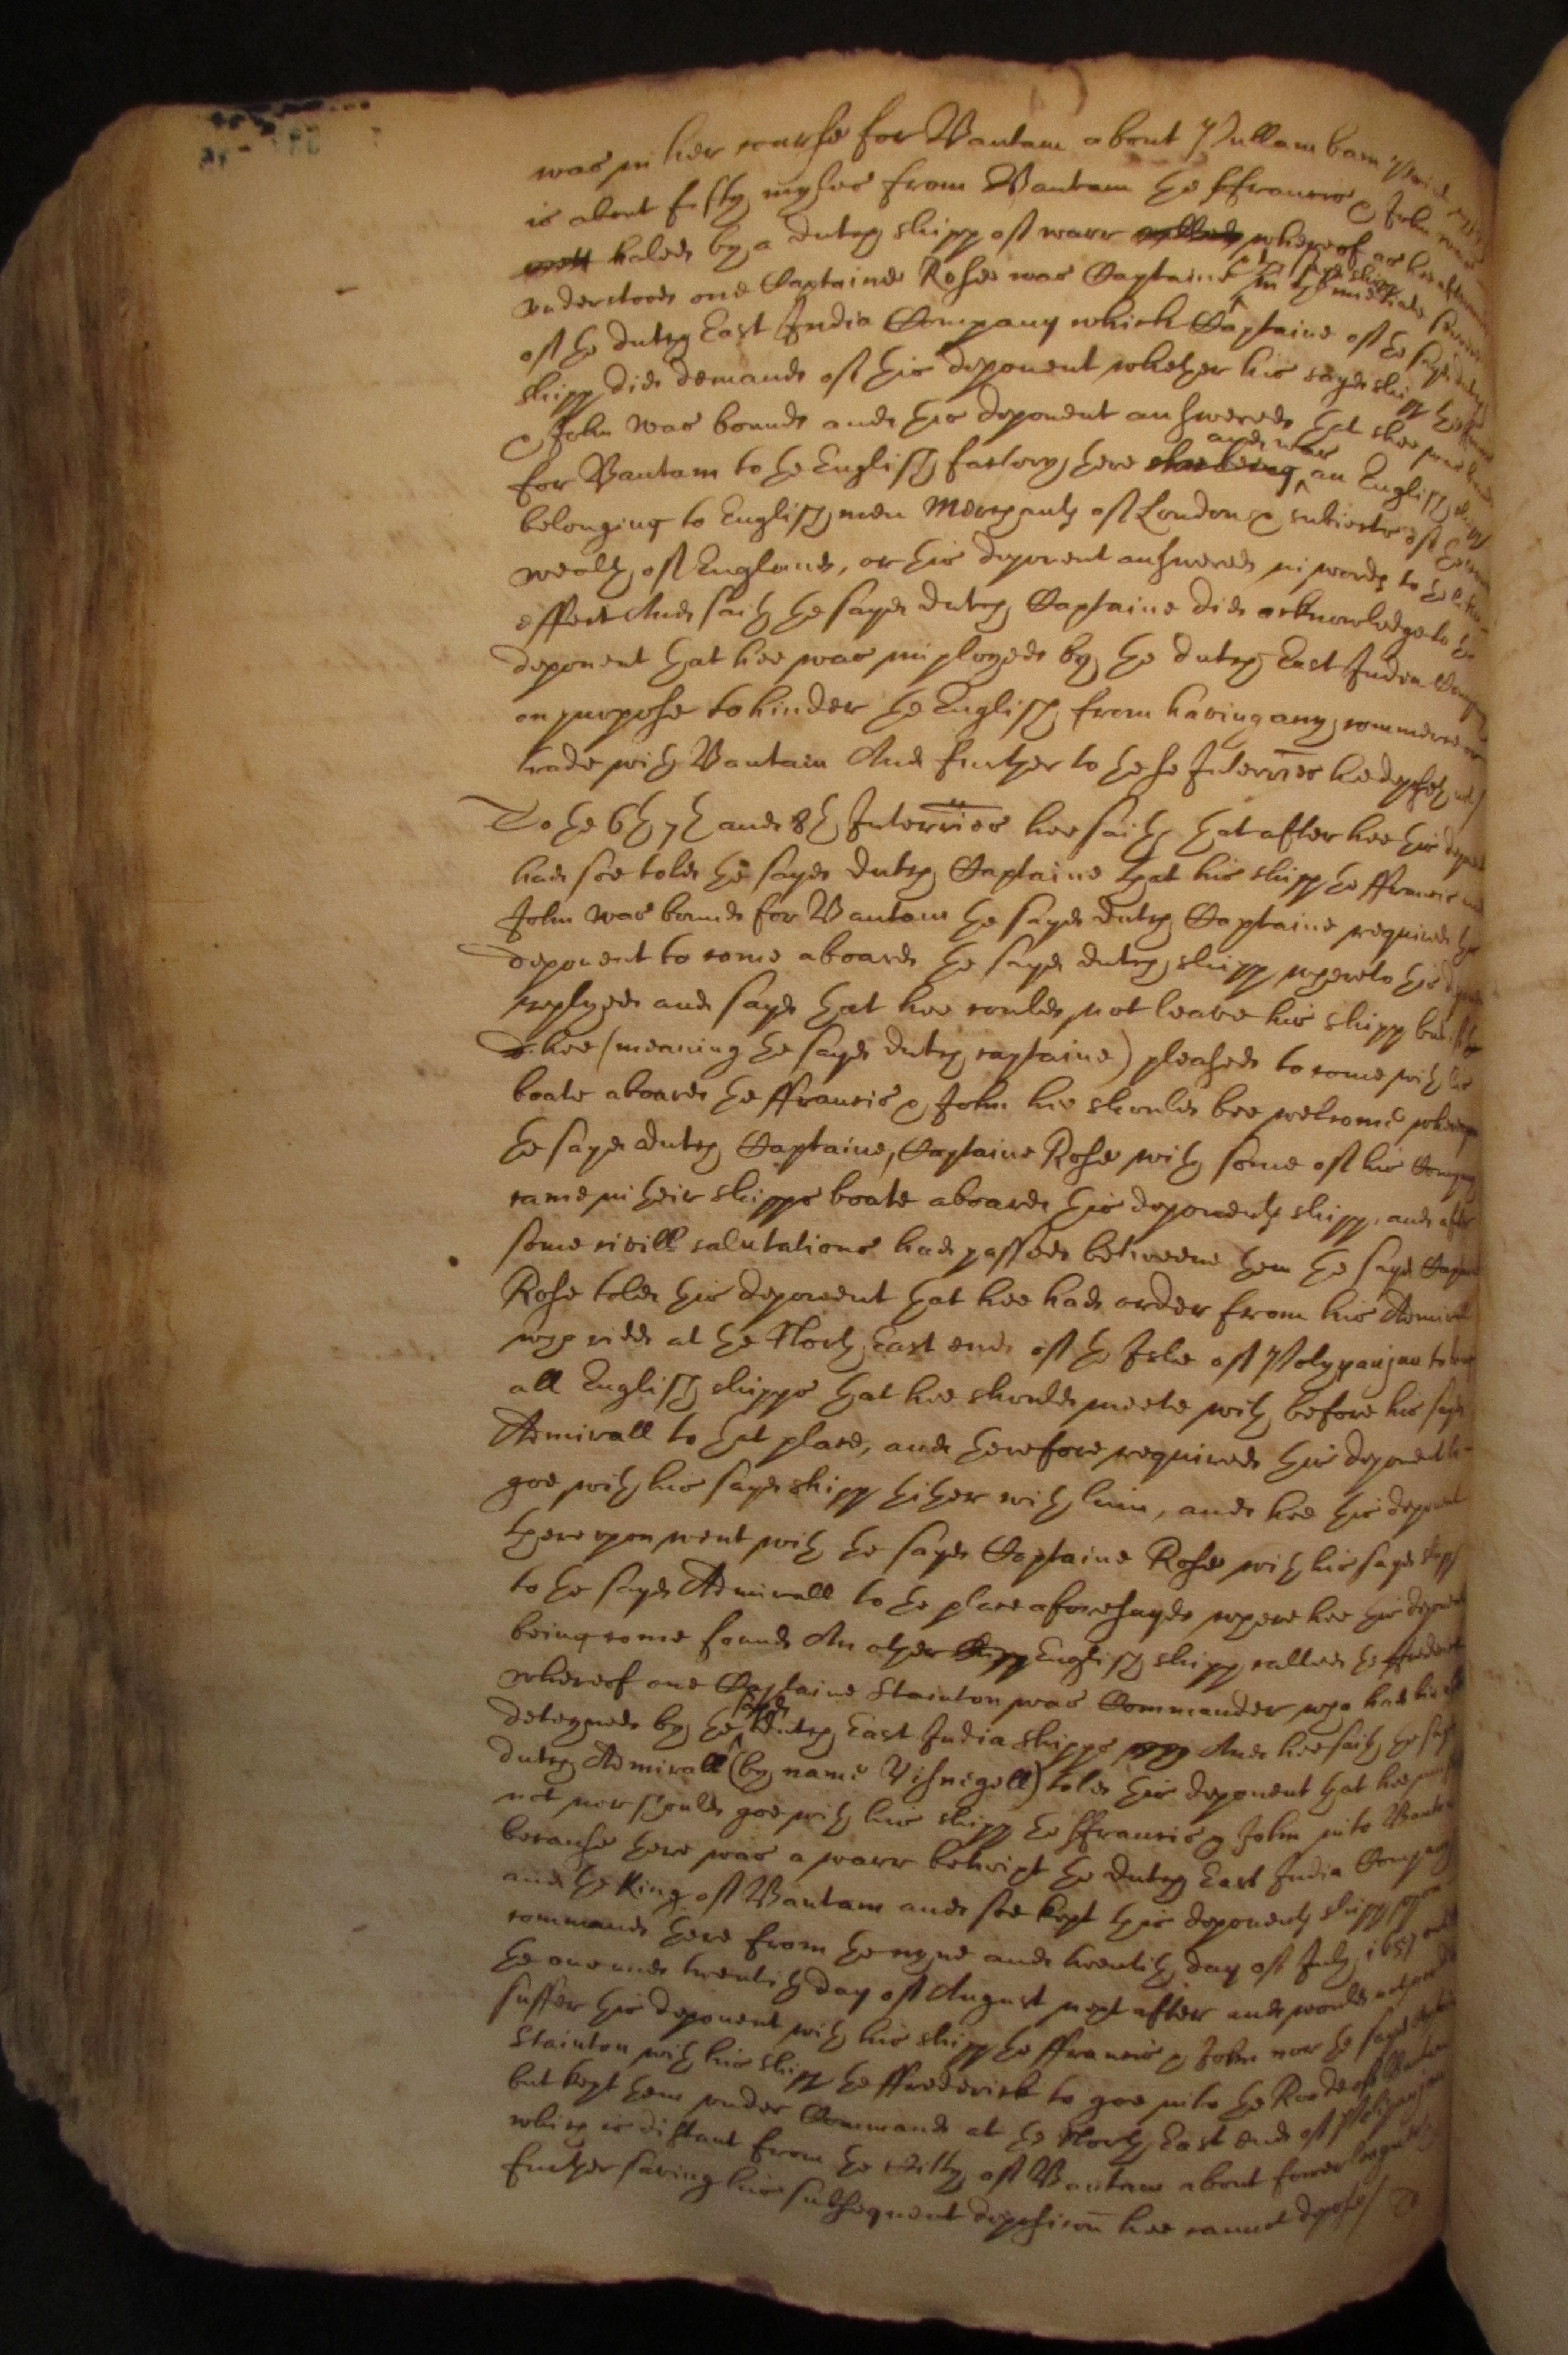 was in her course for Bantam about Pullambam
is about fifty myles from Bantam the ffrancis & John was
haled by a dutch shipp of warr whereof as hee afterwards
understood one Captaine Rose was Captaine in the imediate service
sayd shipp
of the dutch East India Company which Captaine of the sayd dutch
shipp did demand of this deponent whether his sayd shipp the ffrancis
& John was bound and this deponent answered that shee was bound
for Bantam to the English factory there and was an English shipp
belonging to English men Merchants of London & subiects of the Common
wealth of England, or this deponent answered in words to the like
effect And saith the sayd dutch Captaine did acknowledge to the
deponent that hee was imployed by the dutch East India Company
on purpose to hinder the English from having any commerce or
trade with Bantam And further to these Interries hee deposeth not/
To the 6th 7th and 8th Interries hee saith that after hee this deponent
had soe told the sayd dutch Captaine that his shipp the ffrancis and
John was bound for Bantam the sayd dutch Captaine required this
deponent to come aboard the sayd dutch shipp whereto this deponent
replyed and sayd that hee could not leave his shipp but if
hee (meaning the sayd dutch captaine) pleased to come with his
boate aboard the ffrancis & John hee should bee welcome whereupon
the sayd dutch Captaine, Captaine Rose with some of his Company
came in their shipps boate aboard this deponents shipp, and after
some civill salutations had passed betweene them the sayd Captaine
Rose told this deponent that hee had order from his Admirall
who ridd at the North East end of the Isle of Polypanjan to bring
all English shipps that hee should meete with before his sayd
Admirall to that place, and therefore required this deponent to
goe with his sayd shipp thither with him, and hee this deponent
thereupon went with the sayd Captaine Rose with his sayd shipp
to the sayd Admirall to the place aforesayd where hee this deponent
being come found An other English shipp called the ffrederick
whereof one Captaine Stainton was Commander who had bin
deteyned by the sayd dutch East India shipps And hee saith the sayd
dutch Admirall (by name Visnegell) told this deponent that hee must
not nor should goe with his shipp the ffrancis & John into Bantam
because there was a warr betwixt the dutch East India Company
and the King of Bantam and soe kept this deponents shipp
command there from the nyne and twentith day of July 1657 untill
the one and twentith day of August next after and would not
suffer this deponent with his shipp the ffrancis & John nor the sayd
Stainton with his shipp the ffrederick to goe into the Roade of Bantam
but kept them under Command at the North East end of Polipanjan
which is distant from the Citty of Bantam about fower leagues
further saving his subsequent deposicon hee cannot depose/